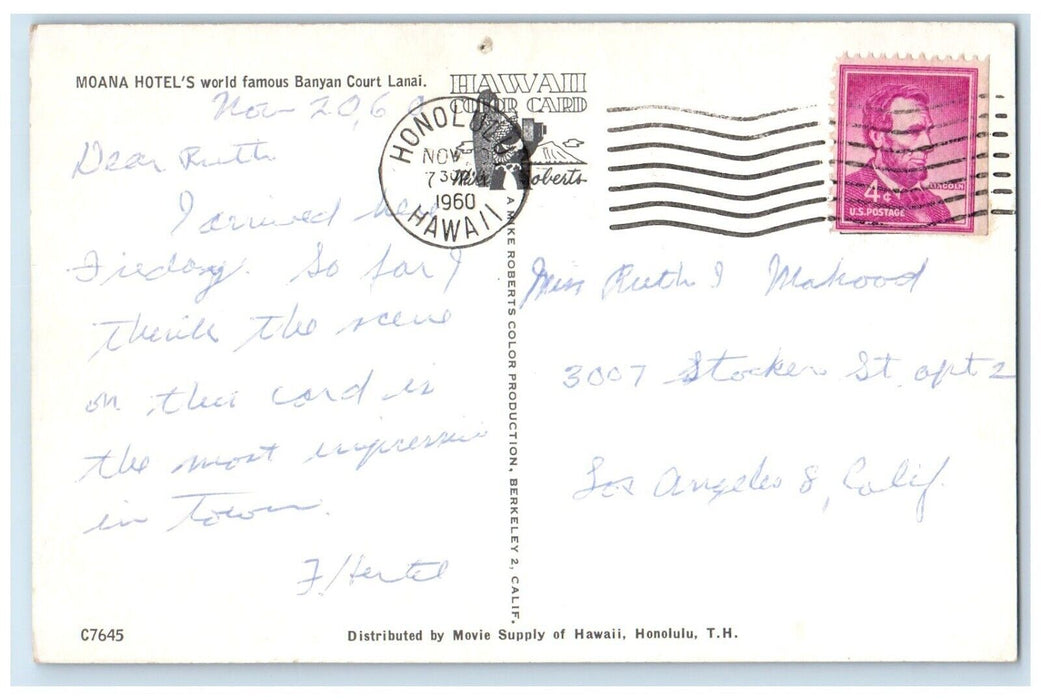 MOANA HOTEL'S world famous Banyan Court Lanai.
HAWAII
COLOR CARD
Mike Roberts
HONOLULU
NOV
7 30 PM
1960
HAWAII
4¢
LINCOLN
U.S. POSTAGE
Nov 20, 60
Dear Ruth
I arrived here
Friday. So far I
think the scene
on this card is
the most impressive
in Town.
F/Hertel
A MIKE ROBERTS COLOR PRODUCTION, BERKELEY 2, CALIF.
Miss Ruth I Mahood
3007 Stocker St apt 2
Los Angeles 8, Calif.
C7645
Distributed by Movie Supply of Hawaii, Honolulu, T.H.